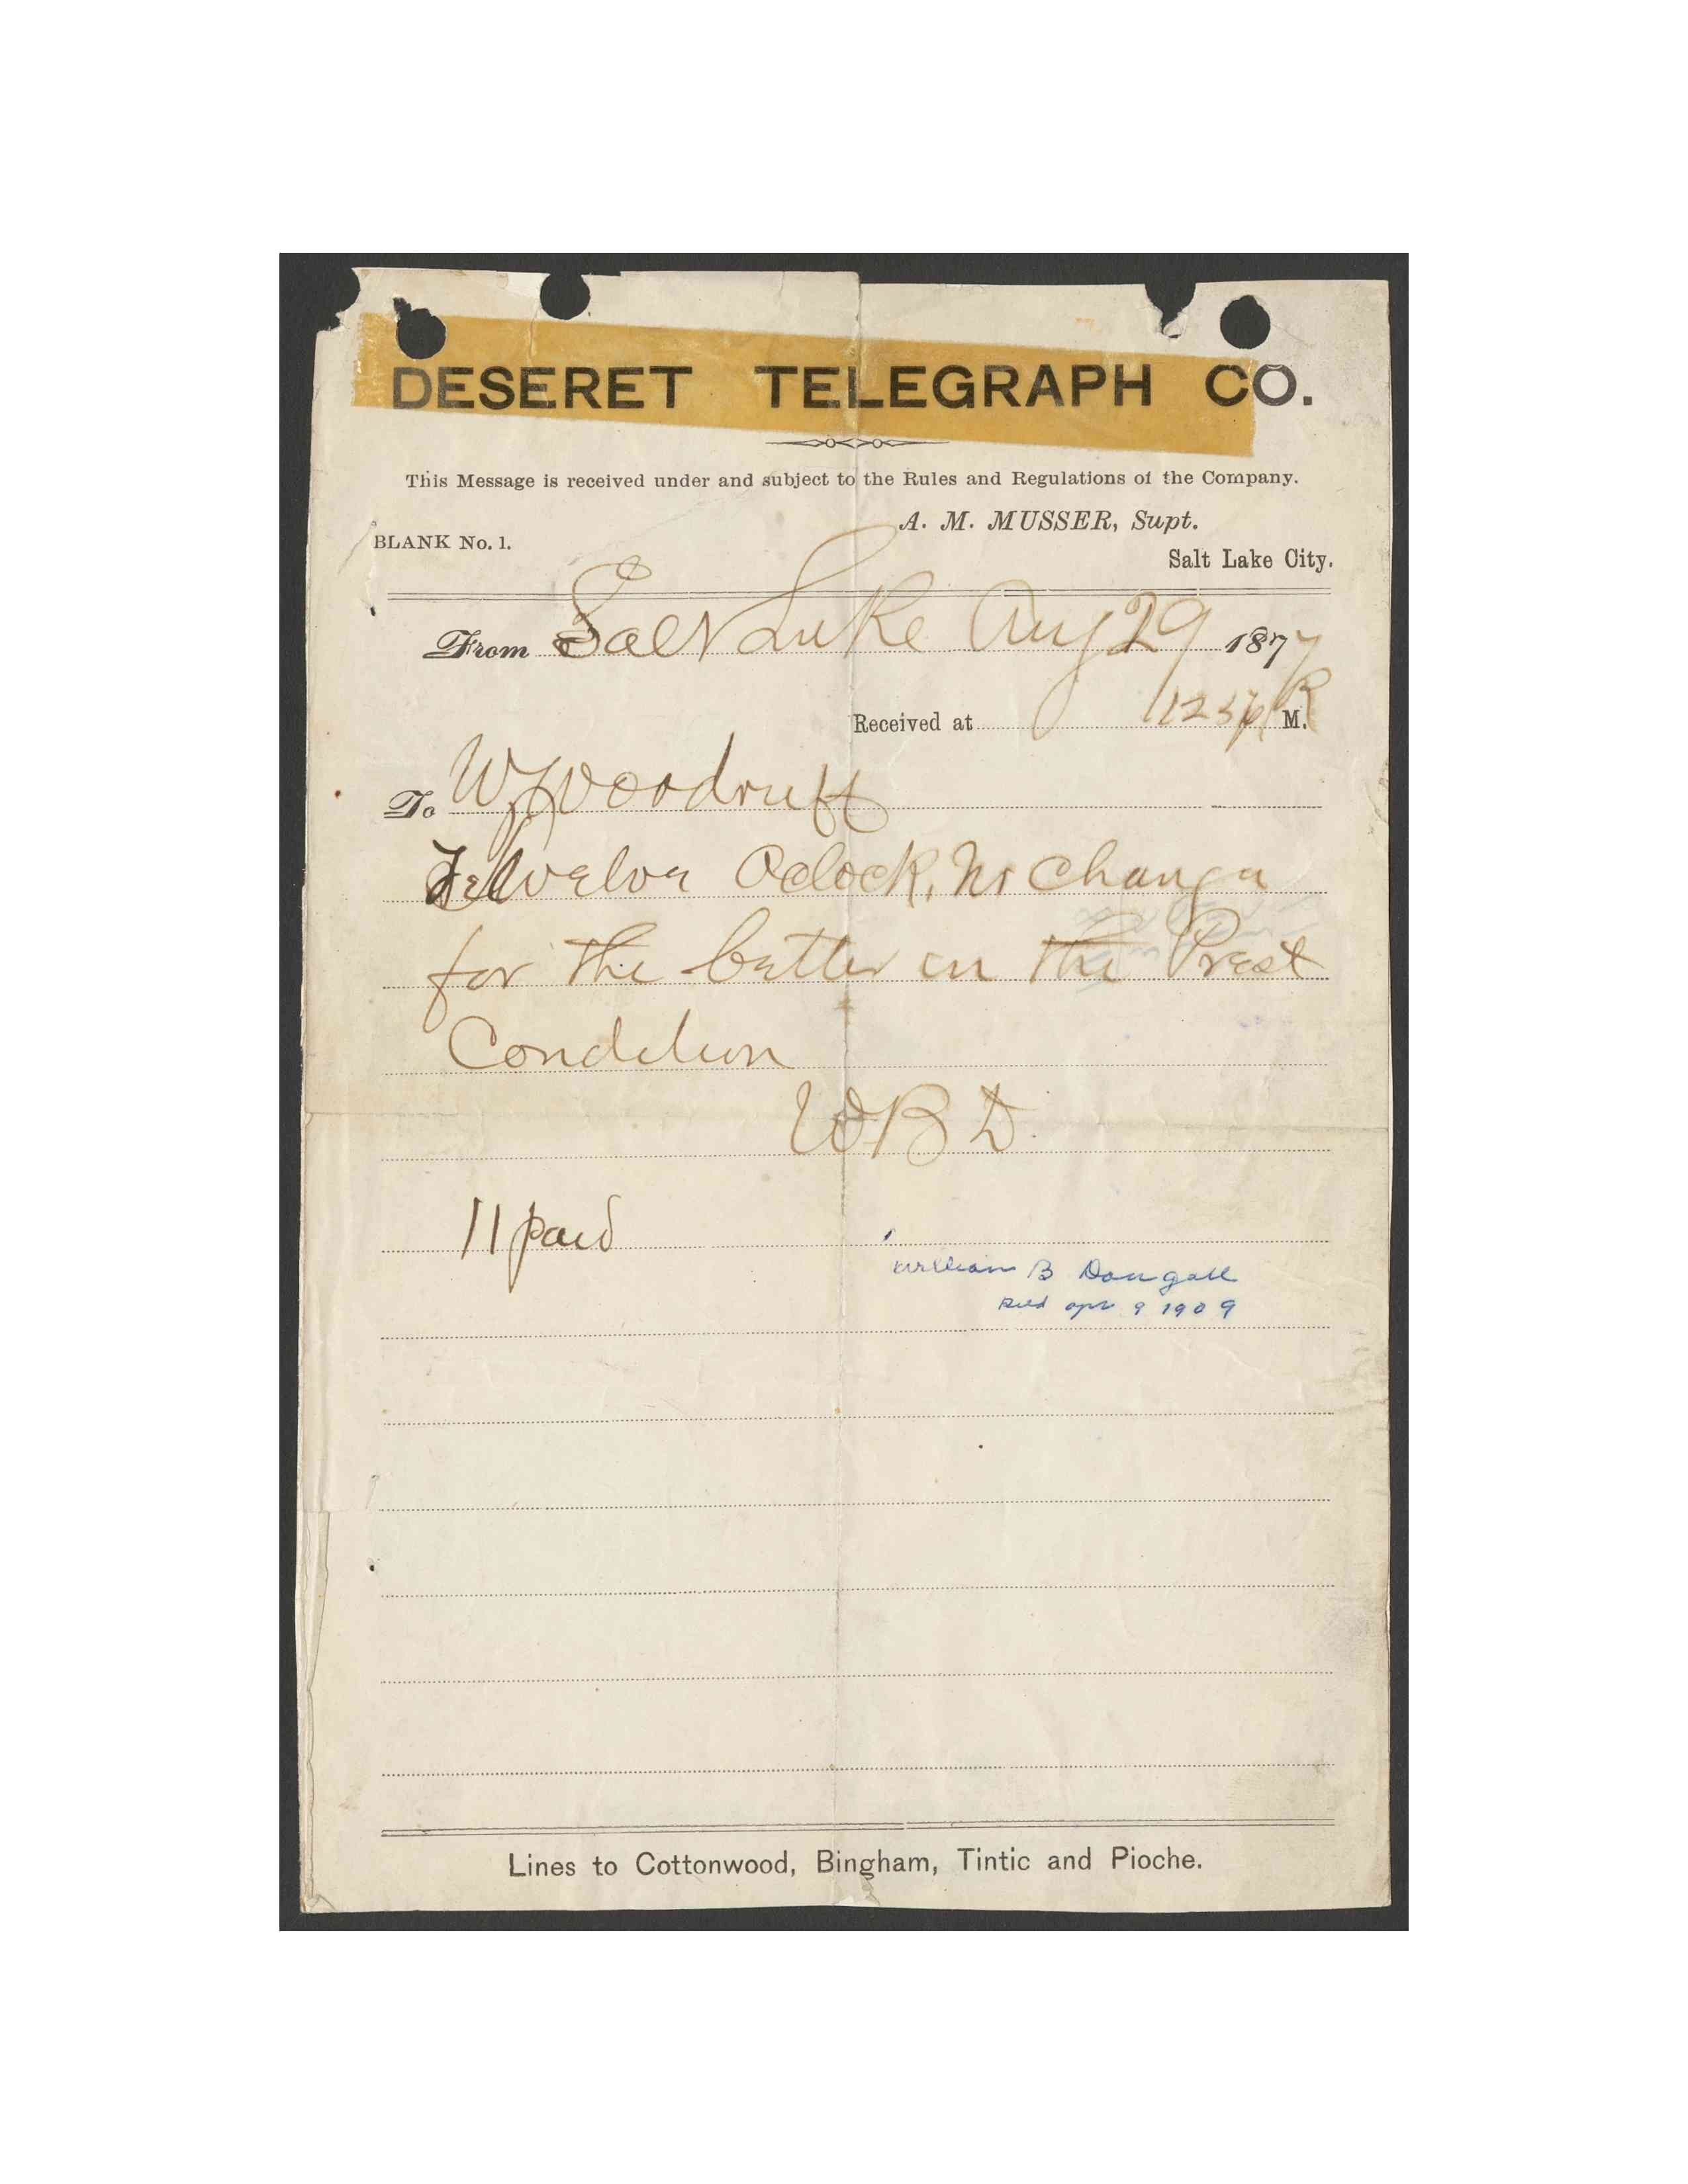 DESERET TELEGRAPH CO.
This Message is received under and subject to the Rules and Regulations of the Company.
A. M. MUSSER, Supt.
BLANK No. 1.
Salt Lake City.
From Salt Lake Aug 29 1877
Received at 12 36 P M.
To W Woodruff
Twelve Oclock, No Change
for the better in the Prest
Condition
W B D.
11 paid
William B Dougall
Died apr 9 1909
Lines to Cottonwood, Bingham, Tintic and Pioche.